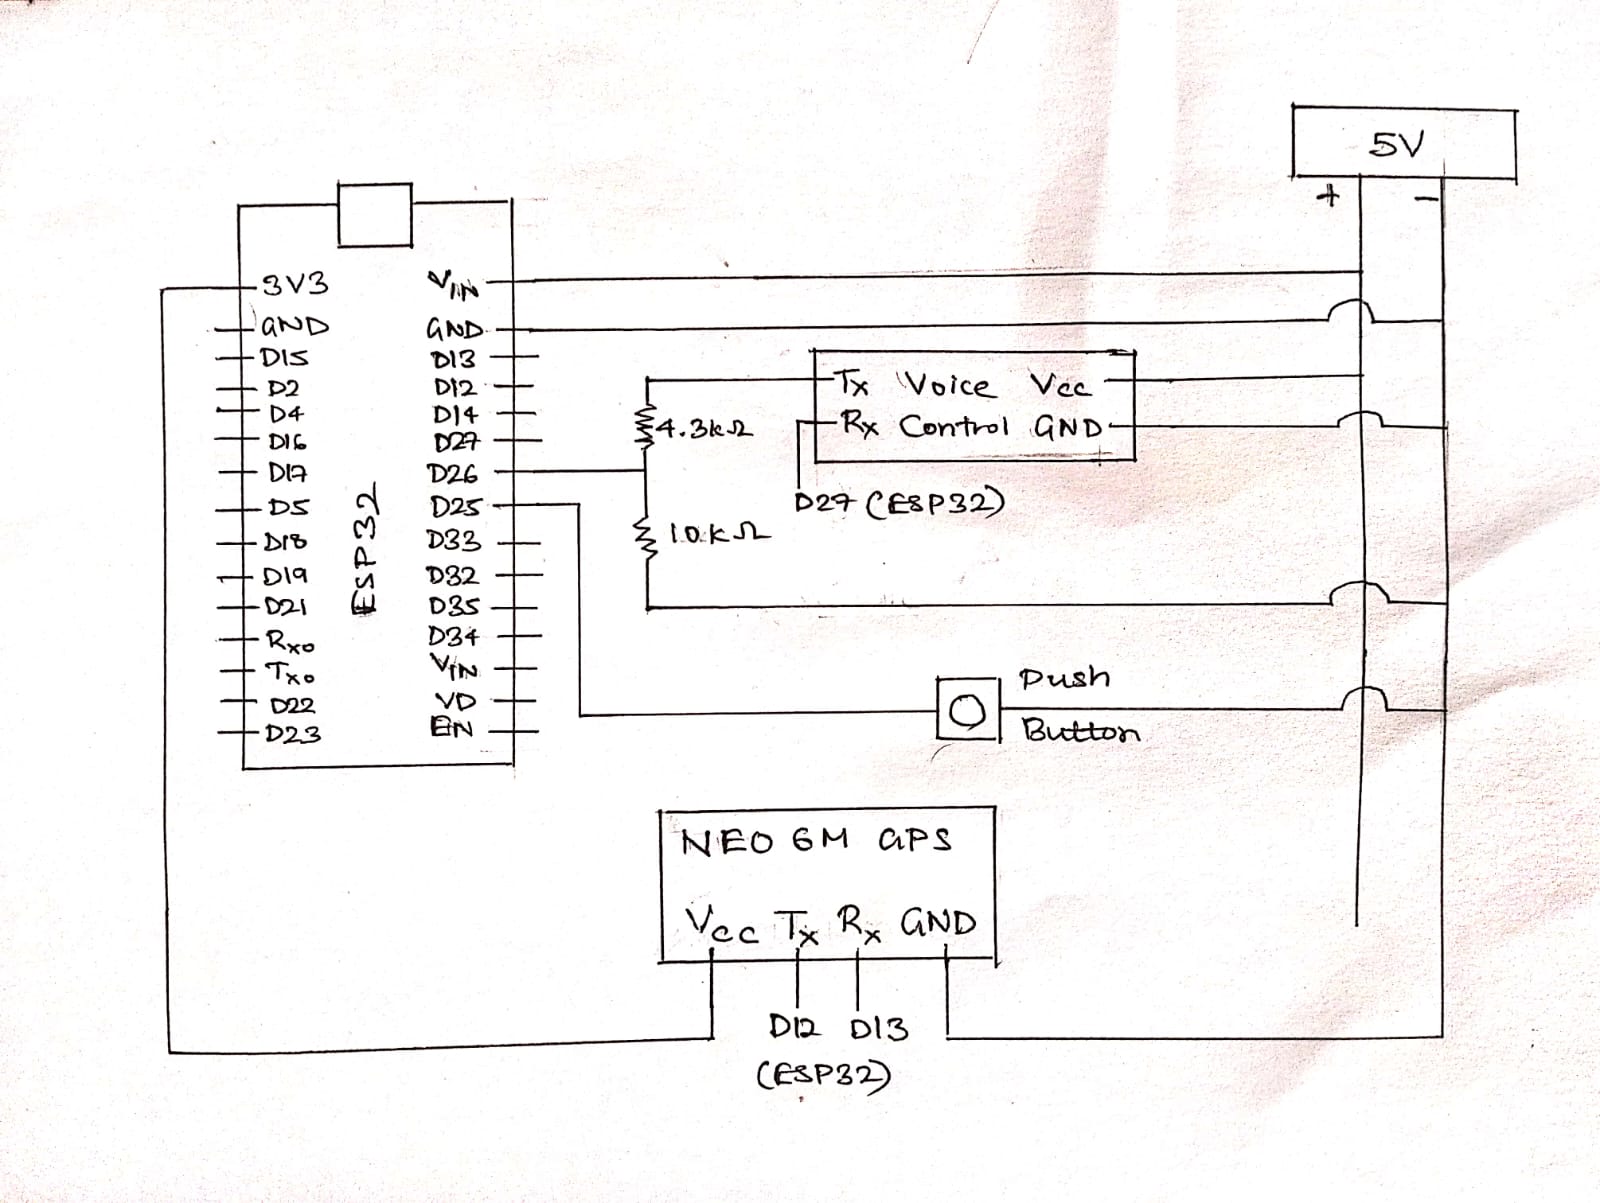 5V
+ −
3V3
GND
D15
D2
D4
D16
D17
D5
D18
D19
D21
Rx0
Tx0
D22
D23
ESP32
VIN
GND
D13
D12
D14
D27
D26
D25
D33
D32
D35
D34
VIN
VD
EN
Tx Voice Vcc
Rx Control GND
4.3kΩ
D27 (ESP32)
10kΩ
Push
Button
NEO 6M GPS
Vcc Tx Rx GND
D12 D13
(ESP32)